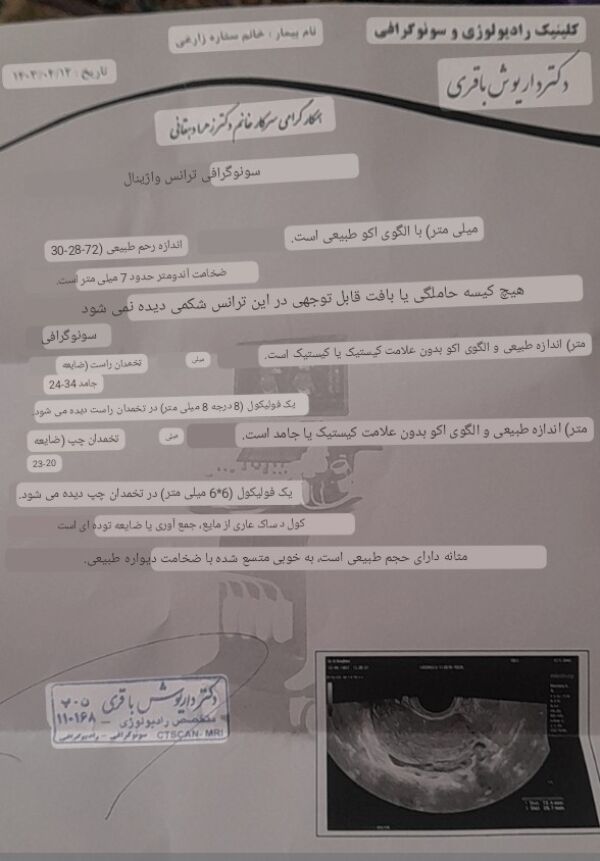 کلینیک رادیولوژی و سونوگرافی
نام بیمار : خانم ستاره زارعی
دکتر داریوش باقری
تاریخ : ۱۴۰۳/۰۴/۱۳
همکار گرامی سرکار خانم دکتر زهرا دهقانی
سونوگرافی ترانس واژینال
میلی متر) با الگوی اکو طبیعی است.
اندازه رحم طبیعی (72-28-30
ضخامت آندومتر حدود 7 میلی متر است.
هیچ کیسه حاملگی یا بافت قابل توجهی در این ترانس شکمی دیده نمی شود
سونوگرافی
متر) اندازه طبیعی و الگوی اکو بدون علامت کیستیک یا کیستیک است.
میلی
تخمدان راست (ضایعه
جامد 34-24
یک فولیکول (8 درجه 8 میلی متر) در تخمدان راست دیده می شود.
متر) اندازه طبیعی و الگوی اکو بدون علامت کیستیک یا جامد است.
میلی
تخمدان چپ (ضایعه
23-20
یک فولیکول (6*6 میلی متر) در تخمدان چپ دیده می شود.
کول د ساک عاری از مایع، جمع آوری یا ضایعه توده ای است
مثانه دارای حجم طبیعی است، به خوبی متسع شده با ضخامت دیواره طبیعی.
دکتر داریوش باقری
ن.پ ۱۱۰۱۶۸
متخصص رادیولوژی
CTSCAN- MRI سونوگرافی - رادیوگرافی